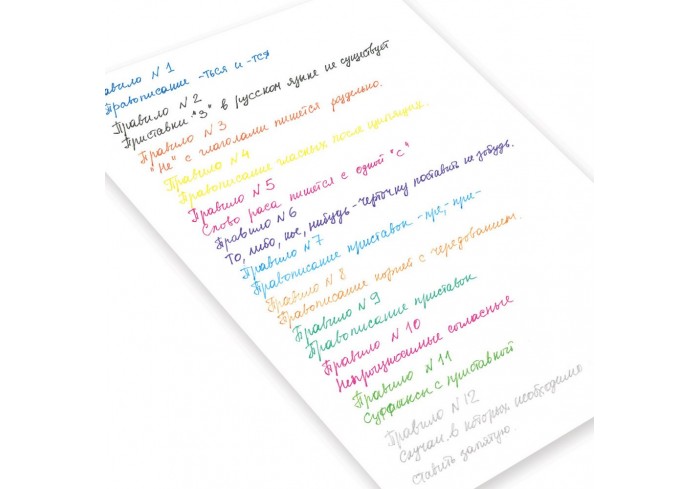 авило N 1
Правописание -ться и -тся
Правило N 2
Приставки "З" в русском языке не существует
Правило N 3
"Не" с глаголами пишется раздельно.
Правило N 4
Правописание гласных после шипящих.
Правило N 5
Слово раса пишется с одной "с"
Правило N 6
То, либо, кое, нибудь - черточку поставить не забудь.
Правило N 7
Правописание приставок -пре,- при-
Правило N 8
Правописание корней с чередованием.
Правило N 9
Правописание приставок
Правило N 10
Непроизносимые согласные
Правило N 11
Суффиксы с приставкой
Правило N 12
Случаи, в которых необходимо
ставить запятую.